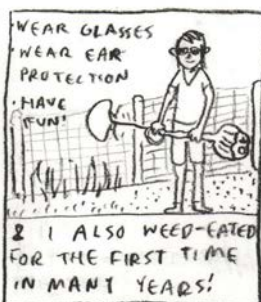 ·WEAR GLASSES
·WEAR EAR
PROTECTION
·HAVE
FUN!
& I ALSO WEED-EATED
FOR THE FIRST TIME
IN MANY YEARS!